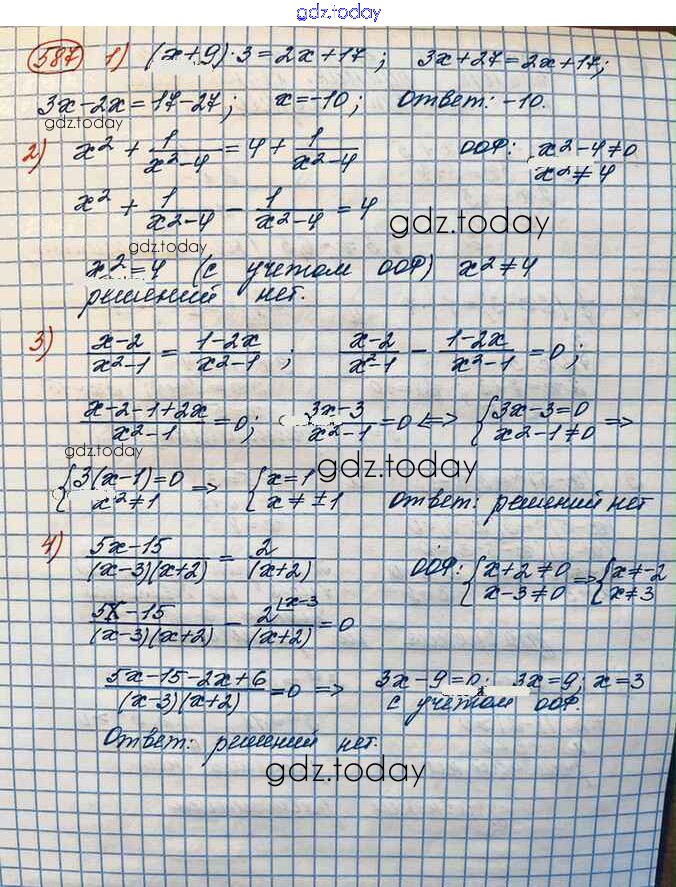 gdz.today
587 1) (x+9)·3=2x+17; 3x+27=2x+17;
3x-2x=17-27; x=-10; Ответ: -10.
gdz.today
2) x² + 1/(x²-4) = 4 + 1/(x²-4) ООФ: x²-4≠0
x²≠4
x² + 1/(x²-4) - 1/(x²-4) = 4
gdz.today
gdz.today
x²=4 (с учетом ООФ) x²≠4
решений нет.
3) (x-2)/(x²-1) = (1-2x)/(x²-1); (x-2)/(x²-1) - (1-2x)/(x²-1) = 0;
(x-2-1+2x)/(x²-1) = 0; (3x-3)/(x²-1) = 0 <=> {3x-3=0 x²-1≠0 =>
gdz.today
gdz.today
{3(x-1)=0 x²≠1 => {x=1 x≠±1 Ответ: решений нет
4) (5x-15)/((x-3)(x+2)) = 2/(x+2) ООФ: {x+2≠0 x-3≠0 => {x≠-2 x≠3
(5x-15)/((x-3)(x+2)) - 2^(x-3/(x+2) = 0
(5x-15-2x+6)/((x-3)(x+2)) = 0 => 3x-9=0; 3x=9; x=3
с учетом ООФ.
Ответ: решений нет.
gdz.today